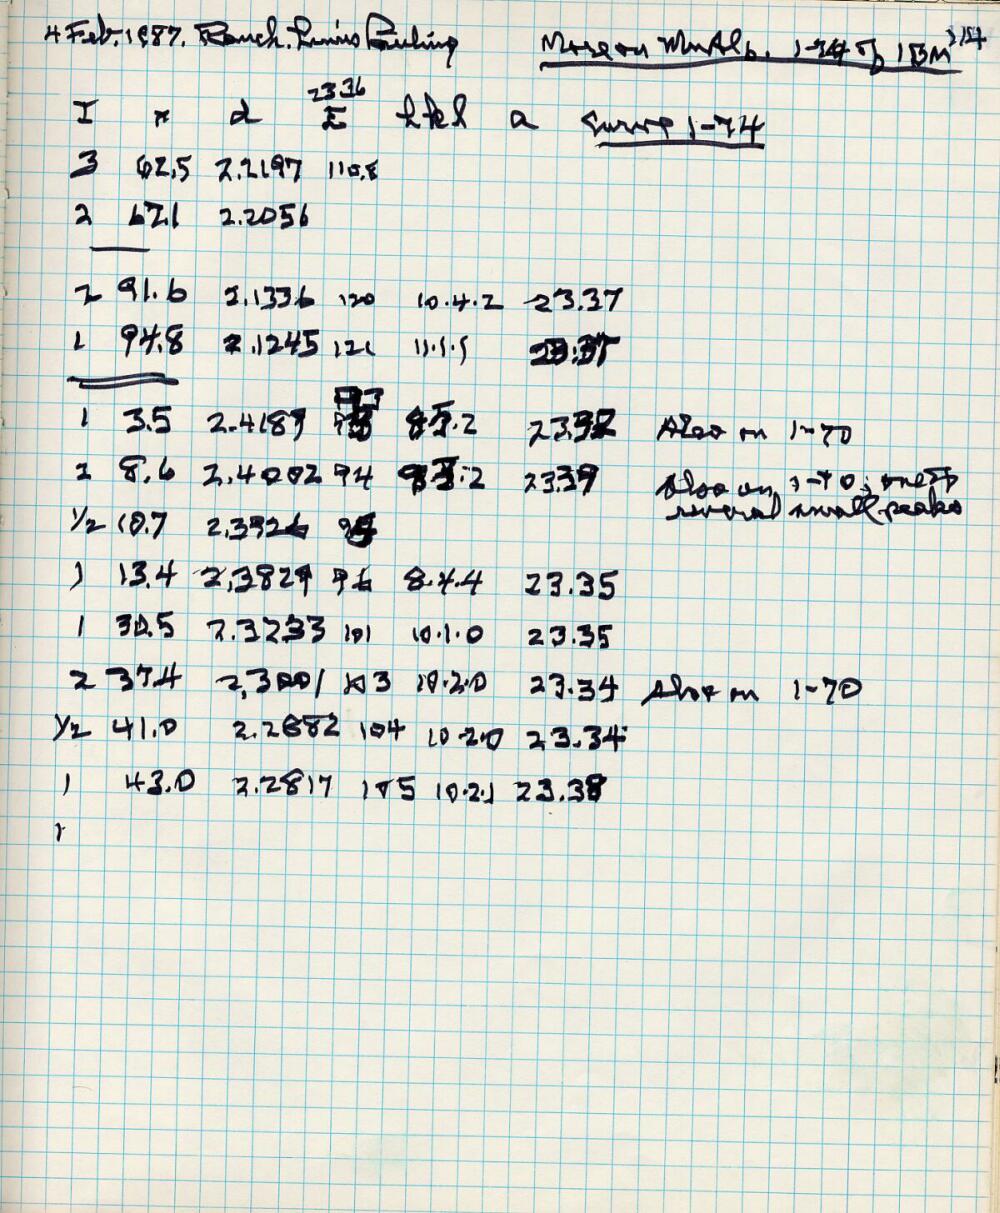 4 Feb. 1987. Ranch. Linus Pauling
More on MnAl6. 1-74 of IBM
23.36
I x d Σ hkl a Curve 1-74
3 62.5 2.2197 110.8
2 67.1 2.2056
2 91.6 2.1336 120 10.4.2 23.37
1 94.8 2.1245 121 11.1.1 23.37
1 3.5 2.4187 93 .2 23.32 Also on 1-70
2 8.6 2.4002 94 .2 23.39 Also on 1-70; one of
several small peaks
1/2 10.7 2.3926 95
1 13.4 2.3829 96 8.4.4 23.35
1 30.5 2.3233 101 10.1.0 23.35
2 37.4 2.3001 103 10.2.0 23.34 Also on 1-70
1/2 41.0 2.2882 104 10.2.0 23.34
1 43.0 2.2817 105 10.2.1 23.38